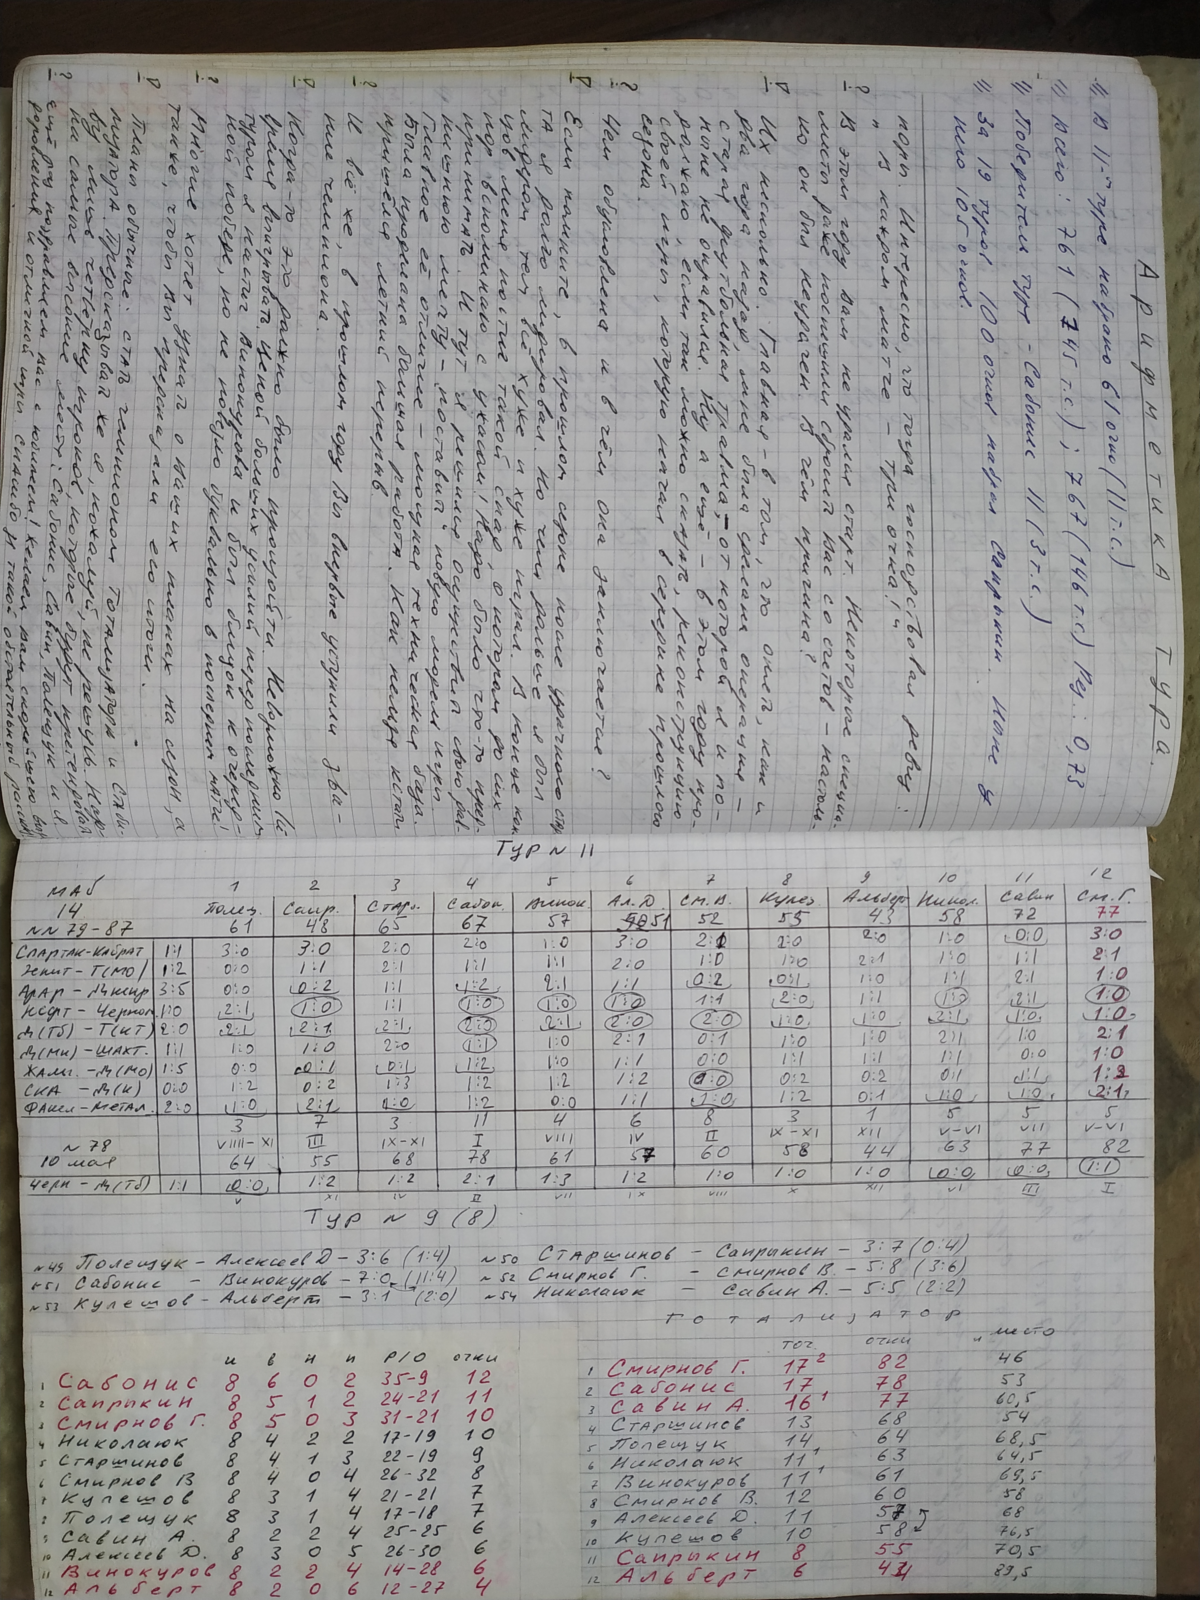 Арифметика тура.
1) В 11-м туре набрано 61 очко (111 т.с.)
1) Всего: 761 (745 т.с); 767 (146 т.с) Рез.: 0,73
1) Победитель тура - Сабонис 11 (3 т.с.)
1) За 19 туров 100 очков набрал Сапрыкин. Ионе у
него 105 очков.
поры. Интересно, что тогда господствовал девиз:
„В каждом матче - три очка!"
? В этом году Вам не удался старт. Некоторые специа-
листы даже поспешили сбросить Вас со счетов - настоль-
ко он был неудачен. В чём причина?
Р Их несколько. Главная - в том, что опять, как и
два года назад, мне была сделана операция -
старая футбольная травма, - от которой я и по-
ныне не оправился. Ну а ещё - в этом году про-
должаю, если так можно сказать, реконструкцию
своей игры, которую начал в середине прошлого
сезона.
? Чем обусловлена и в чём она заключается?
Р Если помните, в прошлом сезоне после удачного стар-
та я долго лидировал. Но чем дальше я был
лидером, тем всё хуже и хуже играл. В конце кон-
цов меня постиг такой спад, о котором до сих
пор вспоминаю с ужасом! Надо было что-то пред-
принимать. И тут я решился осуществить свою дав-
нишнюю мечту - поставить новую модель игры
Главное её отличие - мощная техническая база.
Была проделана большая работа. Как нельзя кстати
пришёлся летний перерыв
? И всё же, в прошлом году Вы впервые уступили зва-
ние чемпиона.
Р Когда-то это должно было произойти. Невозможно всё
время выигрывать. Ценой больших усилий перед последним
туром я настиг Винокурова и был близок к очеред-
ной победе, но не повезло буквально в последнем матче!
? Многие хотят узнать о Ваших планах на сезон, а
также, чтобы Вы предсказали его итоги.
Р Планы обычные: стать чемпионом Тотализатора и Стаби-
лизатора. Предсказывать же я, пожалуй, не решусь. Назо-
ву лишь четверку игроков, которые будут претендовать
на самые высокие места: Сабонис, Савин, Полещук и я
? Ещё раз поздравляем Вас с юбилеем! Желаем Вам скорейшего выз-
доровления и отличной игры. Спасибо
Тур N 11
1 2 3 4 5 6 7 8 9 10 11 12
МАб
14 Полещ. Сапр. Стар. Сабон. Винок. Ал.Д. См.В. Кулеш Альберт Никол. Савин См.Г.
NN 79-87 61 48 65 67 57 51 52 55 43 58 72 77
Спартак-Кайрат 1:1 3:0 3:0 2:0 2:0 1:0 3:0 2:1 2:0 2:0 1:0 0:0 3:0
Зенит-Т(МО) 1:2 0:0 1:1 2:1 1:1 1:1 2:0 1:0 1:0 2:1 1:0 1:1 2:1
Арар-Днепр 3:5 0:0 0:2 1:1 1:2 2:1 1:1 0:2 0:1 1:0 1:1 2:1 1:0
Нефт-Черном 1:0 2:1 1:0 1:1 1:0 1:0 1:0 1:1 2:0 1:1 1:0 2:1 1:0
Д(Тб)-Т(КТ) 2:0 2:1 2:1 2:1 2:0 2:1 2:0 2:0 1:0 1:0 2:1 1:0 1:0
Д(Мн)-Шахт. 1:1 1:0 1:0 2:0 1:1 1:0 2:1 0:1 1:0 1:0 2:1 1:0 2:1
Жалг.-Д(МО) 1:5 0:0 0:1 0:1 1:2 1:0 1:1 0:0 1:1 1:1 1:1 0:0 1:0
СКА-Д(К) 0:0 1:2 0:2 1:3 1:2 1:2 1:2 0:0 0:2 0:2 0:1 1:1 1:2
Факел-Метал. 2:0 1:0 2:1 1:0 1:2 0:0 1:1 1:0 1:2 0:1 1:0 1:0 2:1
3 7 3 11 4 6 8 3 1 5 5 5
VIIII-XI III IX-XI I VIII IV II IX-XI XII V-VI VII V-VI
N 78
10 мая 64 55 68 78 61 57 60 58 44 63 77 82
Черн-Д(Тб) 1:1 0:0 1:2 1:2 2:1 1:3 1:2 1:0 1:0 1:0 0:0 0:0 1:1
V XI IV II VII IX VIII X XII VI III I
Тур N 9 (8)
N49 Полещук - Алексеев Д - 3:6 (1:4) N50 Старшинов - Сапрыкин - 3:7 (0:4)
N51 Сабонис - Винокуров - 7:0 (11:4) N52 Смирнов Г. - Смирнов В. - 5:8 (3:6)
N53 Кулешов - Альберт - 3:1 (2:0) N54 Николаюк - Савин А. - 5:5 (2:2)
и в н п Р/О очки
1 Сабонис 8 6 0 2 35-9 12
2 Сапрыкин 8 5 1 2 24-21 11
3 Смирнов Г. 8 5 0 3 31-21 10
4 Николаюк 8 4 2 2 17-19 10
5 Старшинов 8 4 1 3 22-19 9
6 Смирнов В 8 4 0 4 26-32 8
7 Кулешов 8 3 1 4 21-21 7
8 Полещук 8 3 1 4 17-18 7
9 Савин А. 8 2 2 4 25-25 6
10 Алексеев Д. 8 3 0 5 26-30 6
11 Винокуров 8 2 2 4 14-28 6
12 Альберт 8 2 0 6 12-27 4
Тотализатор
точ очки место
1 Смирнов Г. 17² 82 46
2 Сабонис 17 78 53
3 Савин А. 16¹ 77 60,5
4 Старшинов 13 68 54
5 Полещук 14 64 68,5
6 Николаюк 11 63 64,5
7 Винокуров 11¹ 61 69,5
8 Смирнов В. 12 60 58
9 Алексеев Д. 11 57 68
10 Кулешов 10 58 76,5
11 Сапрыкин 8 55 70,5
12 Альберт 6 44 89,5